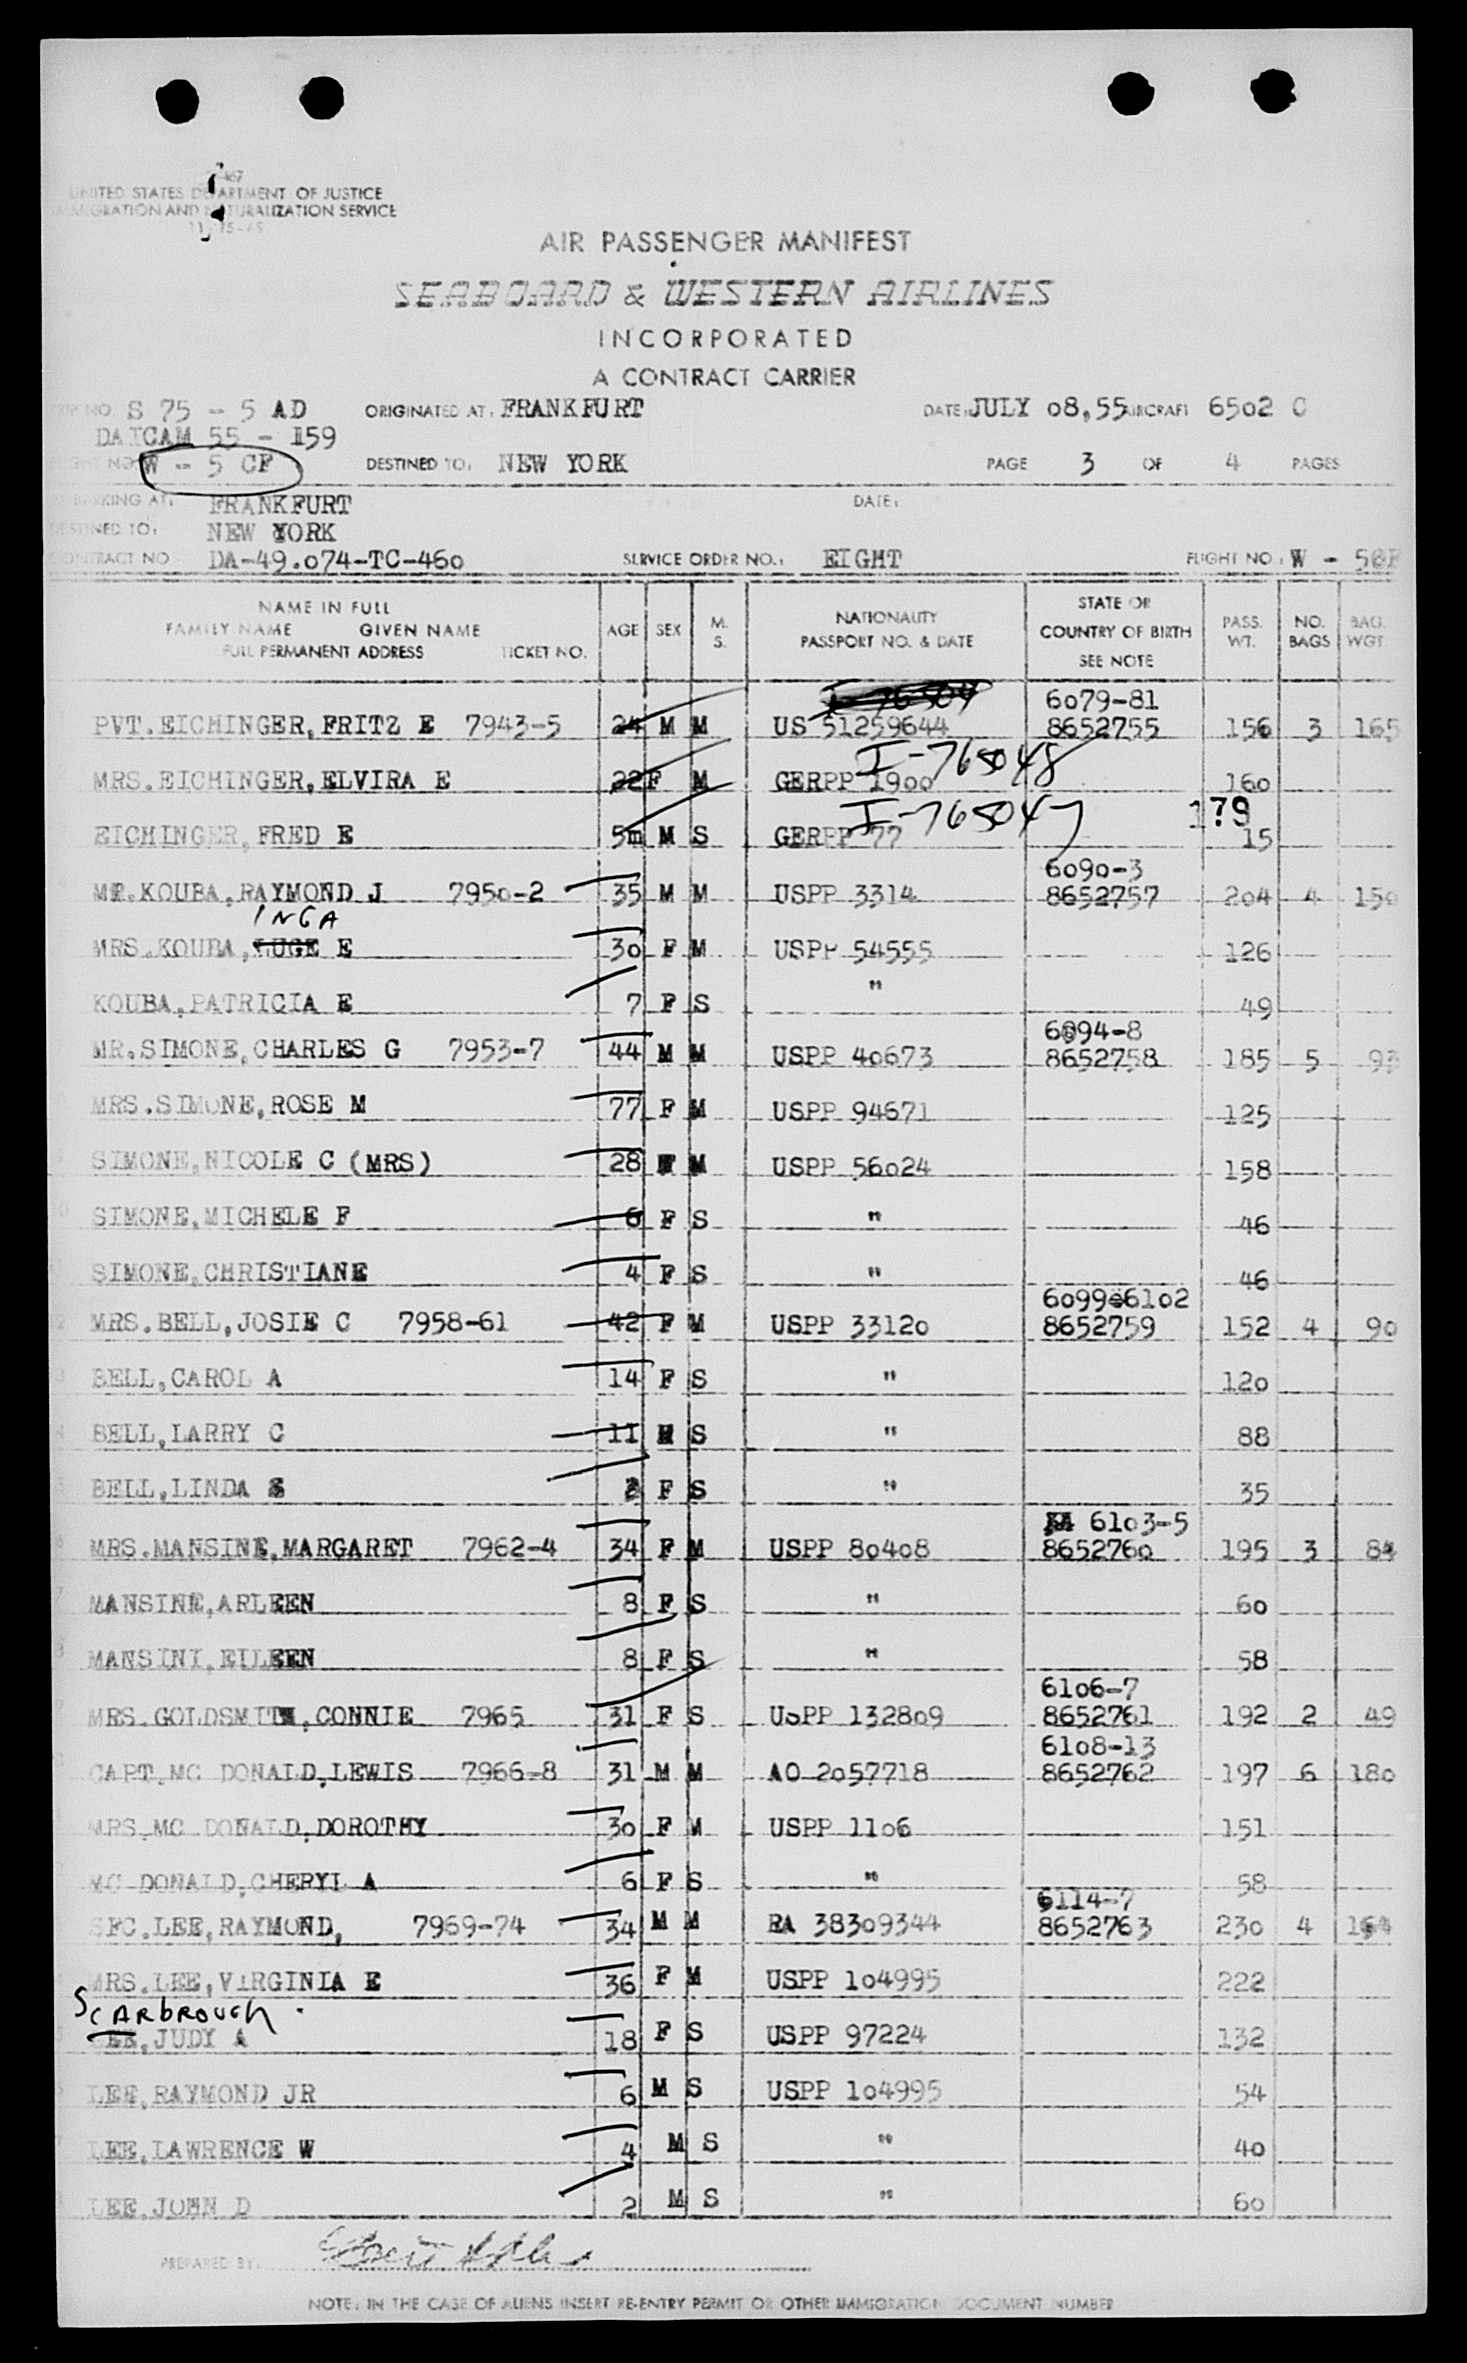 UNITED STATES DEPARTMENT OF JUSTICE
IMMIGRATION AND NATURALIZATION SERVICE
AIR PASSENGER MANIFEST
SEABOARD & WESTERN AIRLINES
INCORPORATED
A CONTRACT CARRIER
TRIP NO. S 75 - 5 AD ORIGINATED AT: FRANKFURT DATE: JULY 08,55 AIRCRAFT 6502 C
DAICAM 55 - 159
FLIGHT NO. W - 5 CF DESTINED TO: NEW YORK PAGE 3 OF 4 PAGES
EMBARKING AT: FRANKFURT DATE:
DESTINED TO: NEW YORK
CONTRACT NO. DA-49.074-TC-460 SERVICE ORDER NO.: EIGHT FLIGHT NO: W -
NAME IN FULL
FAMILY NAME GIVEN NAME
FULL PERMANENT ADDRESS TICKET NO.
AGE SEX M. S.
NATIONALITY
PASSPORT NO. & DATE
STATE OR
COUNTRY OF BIRTH
SEE NOTE
PASS. WT. NO. BAGS BAG. WGT.
6079-81
PVT.EICHINGER,FRITZ E 7943-5 24 M M US 51259644 8652755 156 3 165
I-765048
MRS.EICHINGER,ELVIRA E 22 F M GERPP 1900 160
I-765047 179
EICHINGER,FRED E 5m M S GERPP 77 15
6090-3
MR.KOUBA,RAYMOND J 7950-2 35 M M USPP 3314 8652757 204 4 150
INGA
MRS.KOUBA, E 30 F M USPP 54555 126
KOUBA,PATRICIA E 7 F S " 49
6094-8
MR.SIMONE,CHARLES G 7953-7 44 M M USPP 40673 8652758 185 5 93
MRS.SIMONE,ROSE M 77 F M USPP 94671 125
SIMONE,NICOLE C (MRS) 28 F M USPP 56024 158
SIMONE,MICHELE F 6 F S " 46
SIMONE,CHRISTIANE 4 F S " 46
6099-6102
MRS.BELL,JOSIE C 7958-61 42 F M USPP 33120 8652759 152 4 90
BELL,CAROL A 14 F S " 120
BELL,LARRY C 11 M S " 88
BELL,LINDA S F S " 35
6103-5
MRS.MANSINE,MARGARET 7962-4 34 F M USPP 80408 8652760 195 3 84
MANSINE,ARLEEN 8 F S " 60
MANSINI,EILEEN 8 F S " 58
6106-7
MRS.GOLDSMITH,CONNIE 7965 31 F S USPP 132809 8652761 192 2 49
6108-13
CAPT.MC DONALD,LEWIS 7966-8 31 M M AO 2057718 8652762 197 6 180
MRS.MC DONALD,DOROTHY 30 F M USPP 1106 151
MC DONALD,CHERYL A 6 F S " 58
6114-7
SFC.LEE,RAYMOND, 7969-74 34 M M RA 38309344 8652763 230 4 164
MRS.LEE,VIRGINIA E 36 F M USPP 104995 222
SCARBROUGH
LEE,JUDY A 18 F S USPP 97224 132
LEE,RAYMOND JR 6 M S USPP 104995 54
LEE,LAWRENCE W 4 M S " 40
LEE,JOHN D 2 M S " 60
PREPARED BY:
NOTE: IN THE CASE OF ALIENS INSERT RE-ENTRY PERMIT OR OTHER IMMIGRATION DOCUMENT NUMBER